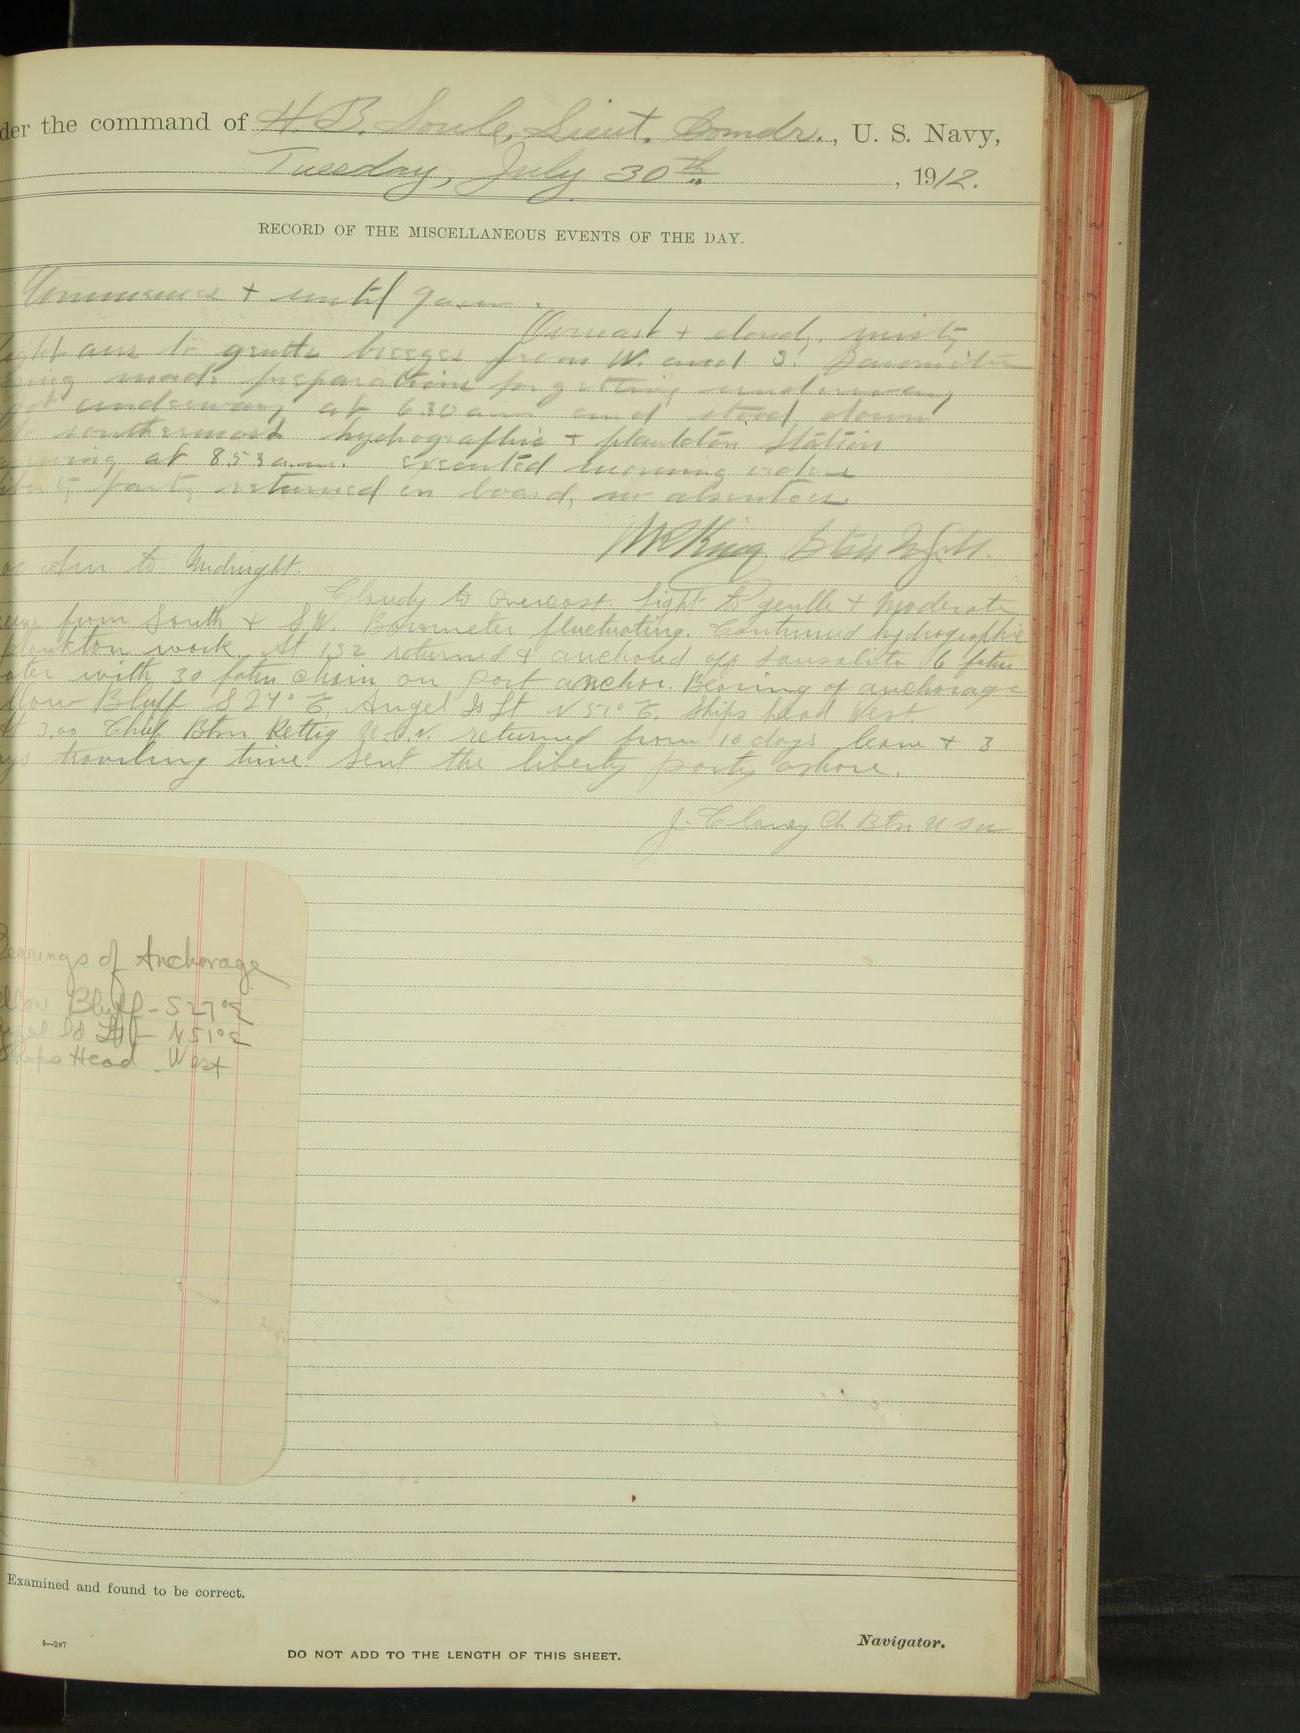 der the command of H. B. Soule, Lieut. Comdr., U. S. Navy,
Tuesday, July 30th, 1912.
RECORD OF THE MISCELLANEOUS EVENTS OF THE DAY.
Commences + until 9 a.m.
Overcast + cloudy, misty
light airs to gentle breezes from W. and S. Barometer
made preparations for getting underway
got underway at 6.30 a.m. and stood down
to southermost hydrographic + plankton station
at 8.53 a.m. executed morning orders
liberty party returned on board, no absentees.
to Midnight.
Cloudy to overcast. Light to gentle + moderate
from South + S.W. Barometer fluctuating. Continued hydrographic
plankton work. At 1.32 returned + anchored off Sausalito 6 fthm
water with 30 fathm chain on port anchor. Bearing of anchorage
llow Bluff S 24° E. Angel Is Lt N 51° E. Ships head West.
At 3.00 Chief Btsn Rettig U.S.N. returned from 10 days leave + 3
ys traveling time. Sent the liberty party ashore.
J. Clancy Ch Btsn U S N
Bearings of Anchorage
ellow Bluff - S 27° E
Angel Id Lt - N 51° E
Ships Head - West
Examined and found to be correct.
4—287
DO NOT ADD TO THE LENGTH OF THIS SHEET.
Navigator.